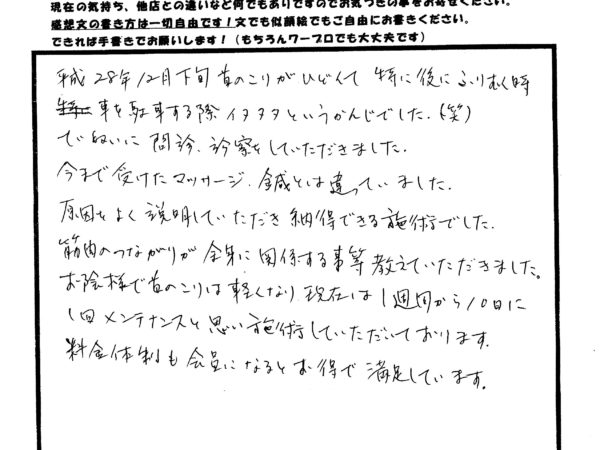 現在の気持ち、他店との違いなど何でもありですのでお気づきの事をお寄せください。
感想文の書き方は一切自由です!文でも似顔絵でもご自由にお書きください。
できれば手書きでお願いします!(もちろんワープロでも大丈夫です)
平成28年12月下旬首のこりがひどくて 特に後にふりむく時
車を駐車する際イタタタというかんじでした.(笑)
ていねいに 問診、診察をしていただきました.
今まで受けたマッサージ、鍼とは違っていました.
原因をよく説明していただき納得できる施術でした.
筋肉のつながりが全身に関係する事等教えていただきました。
お陰様で首のこりは軽くなり現在は1週間から10日に
1回メンテナンスと思い施術していただいております.
料金体制も会員になるとお得で満足しています.